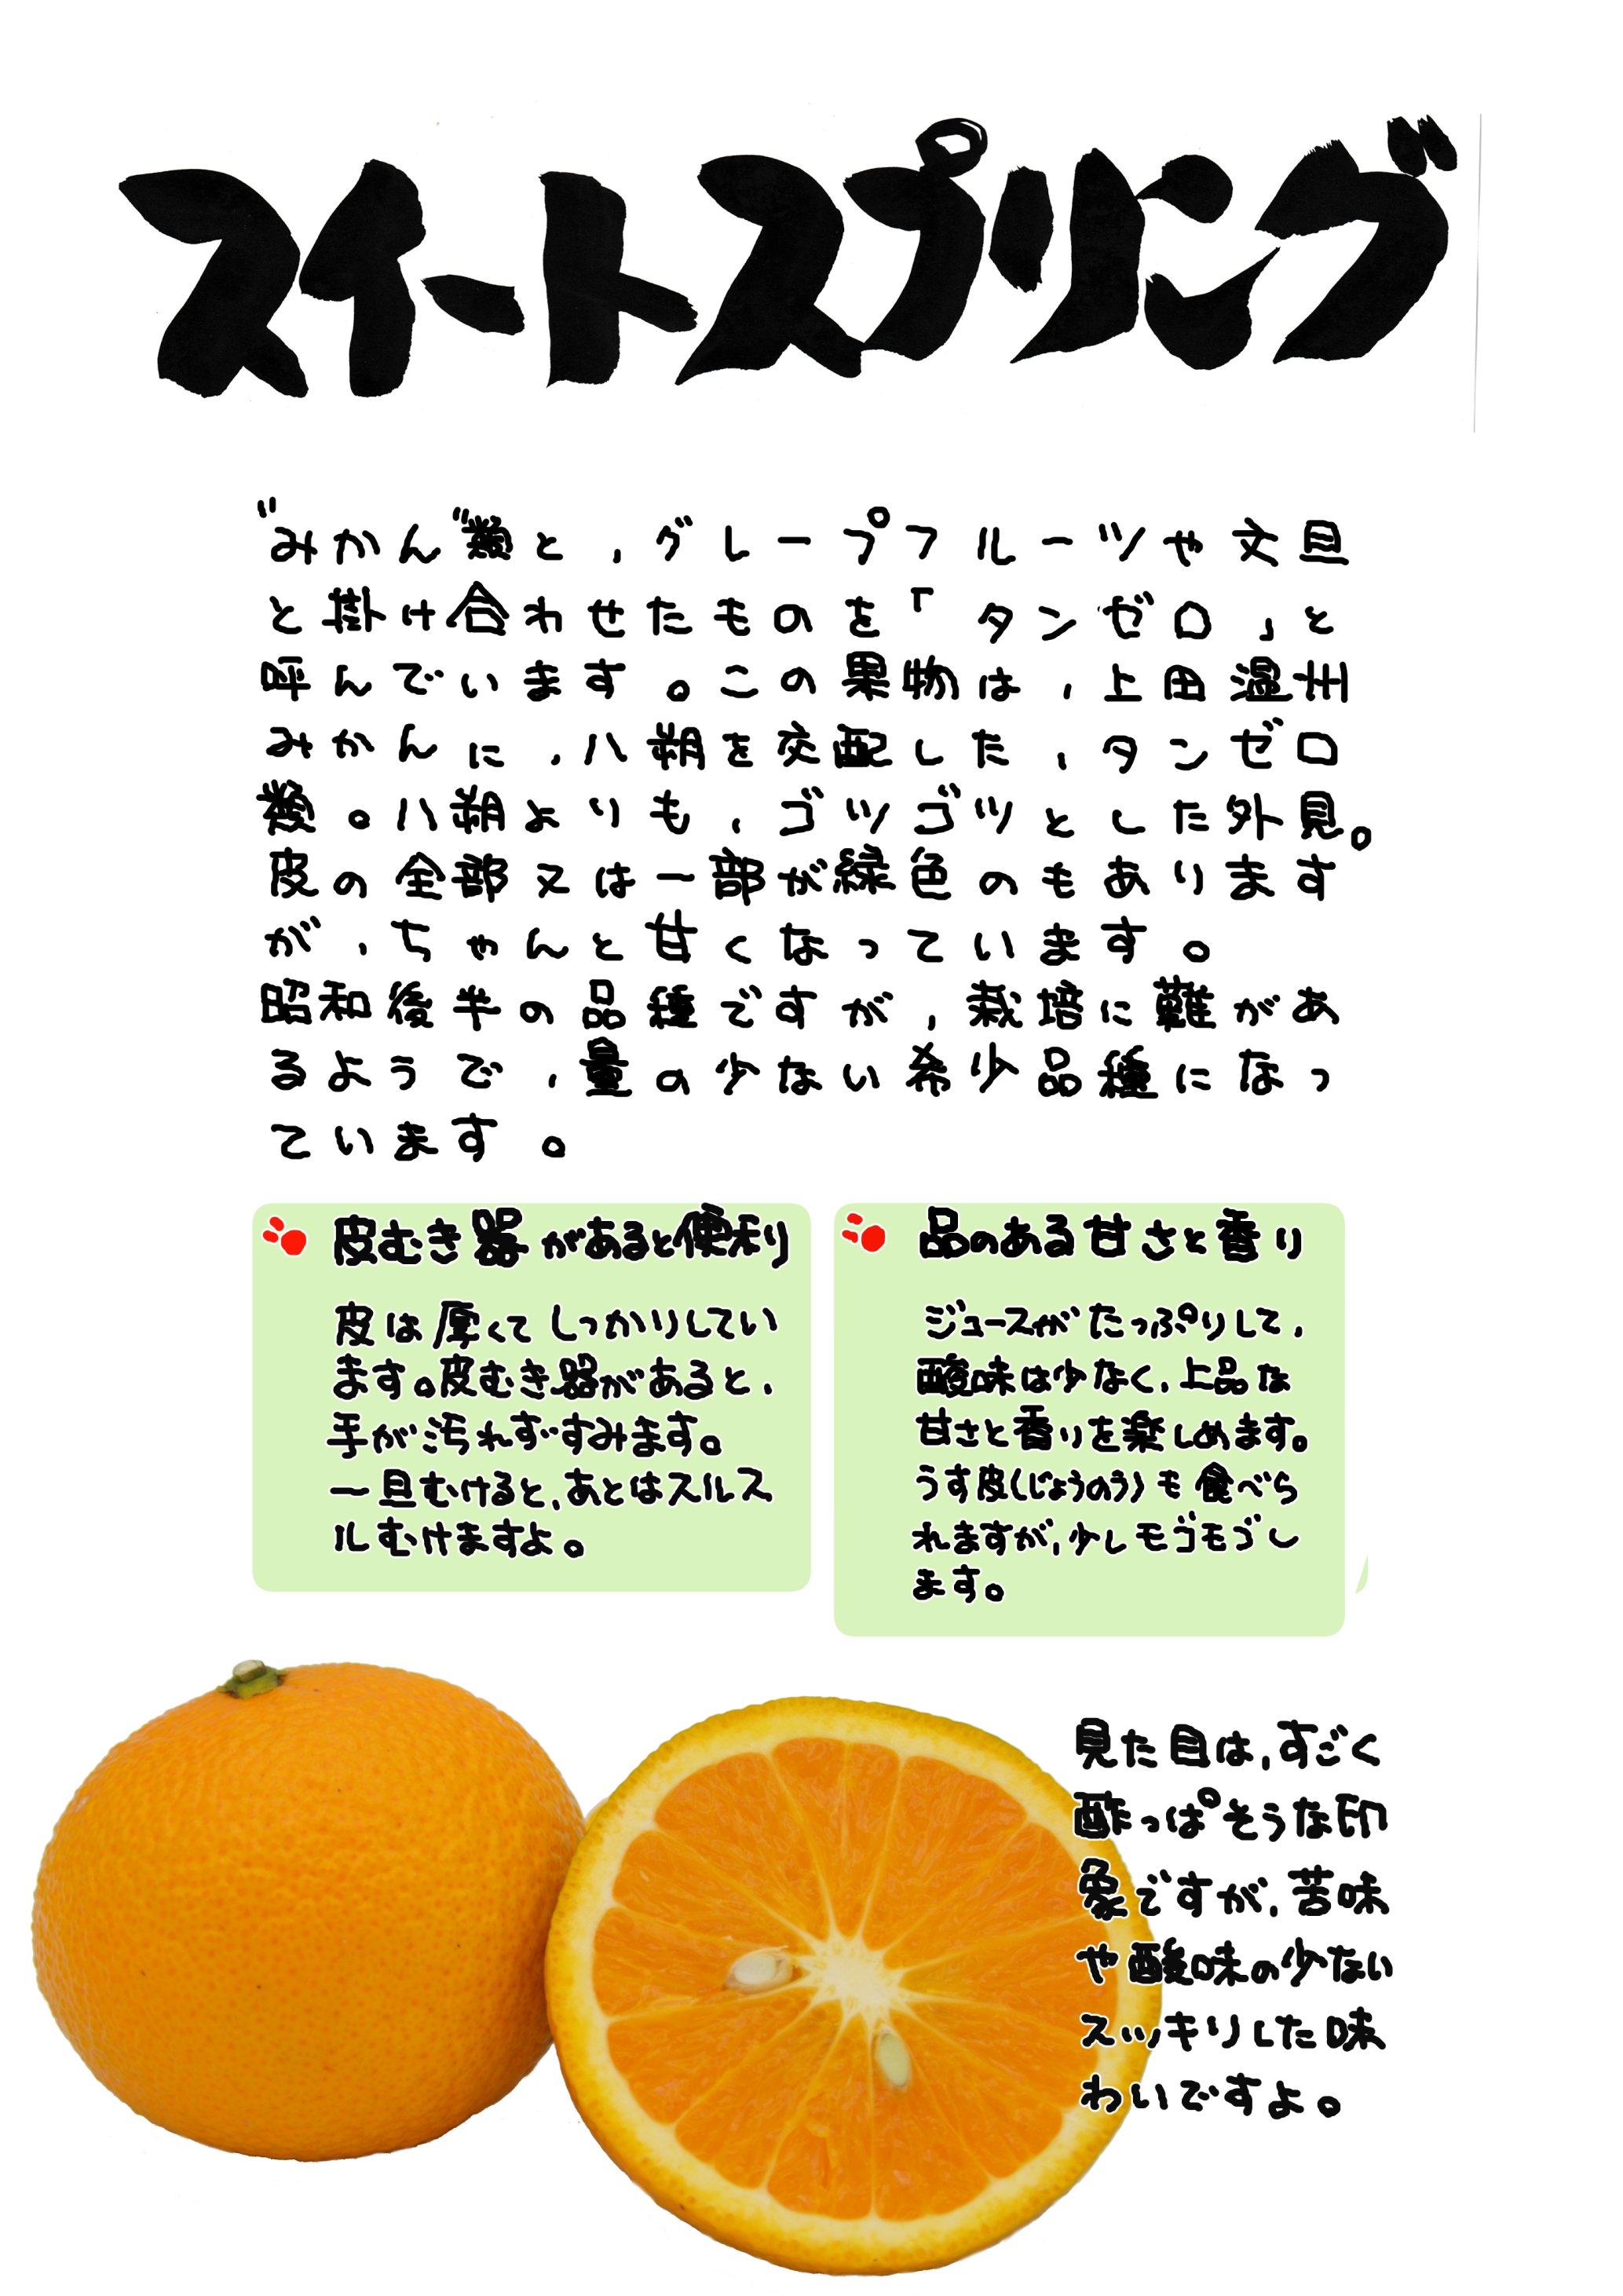 スイートスプリング
"みかん"類と、グレープフルーツや文旦
と掛け合わせたものを「タンゼロ」と
呼んでいます。この果物は、上田温州
みかんに、八朔を交配した、タンゼロ
類。八朔よりも、ゴツゴツとした外見。
皮の全部又は一部が緑色のもあります
が、ちゃんと甘くなっています。
昭和後半の品種ですが、栽培に難があ
るようで、量の少ない希少品種になっ
ています。
皮むき器があると便利
皮は厚くてしっかりしてい
ます。皮むき器があると、
手が汚れずすみます。
一旦むけると、あとはスルス
ルむけますよ。
品のある甘さと香り
ジュースがたっぷりして、
酸味は少なく、上品な
甘さと香りを楽しめます。
うす皮(じょうのう)も食べら
れますが、少しモゴモゴし
ます。
見た目は、すごく
酢っぱそうな印
象ですが、苦味
や酸味の少ない
スッキリした味
わいですよ。